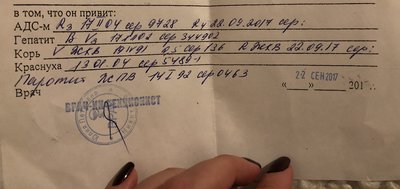 в том, что он привит:
АДС-м R₃ 17 II 04 сер 9428 R4 22.09.2017 сер:
Гепатит В V₂ сер 344902
Корь V ЖКВ 0,5 сер 136 R ЖКВ 22.09.17 сер:
Краснуха 13 01.04 сер 5489-1
Паротит ЖПВ 14 I 92 сер 0463
Врач
22 СЕН 2017